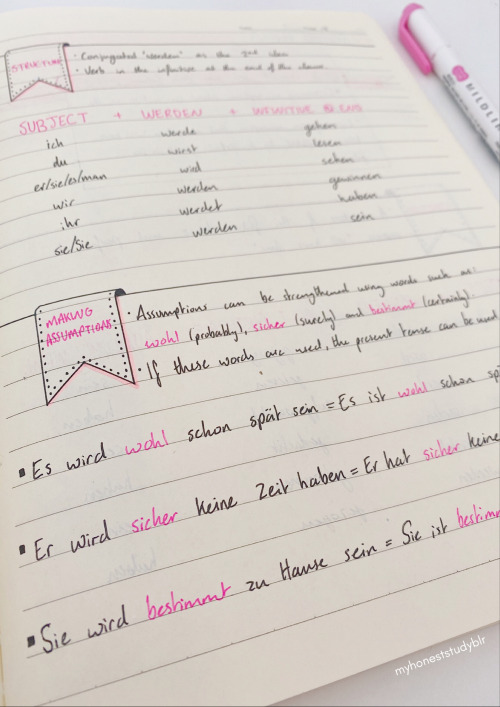 STRUCTURE
• Conjugated "werden" as the 2nd idea
• Verb in the infinitive at the end of the clause
SUBJECT + WERDEN + INFINITIVE @ END
ich werde gehen
du wirst lesen
er/sie/es/man wird sehen
wir werden gewinnen
ihr werdet haben
sie/Sie werden sein
MAKING ASSUMPTIONS
• Assumptions can be strengthened using words such as:
wohl (probably), sicher (surely) and bestimmt (certainly).
• If these words are used, the present tense can be used
▪ Es wird wohl schon spät sein = Es ist wohl schon sp
▪ Er wird sicher keine Zeit haben = Er hat sicher keine
▪ Sie wird bestimmt zu Hause sein = Sie ist bestimm
MILDLI
myhoneststudyblr